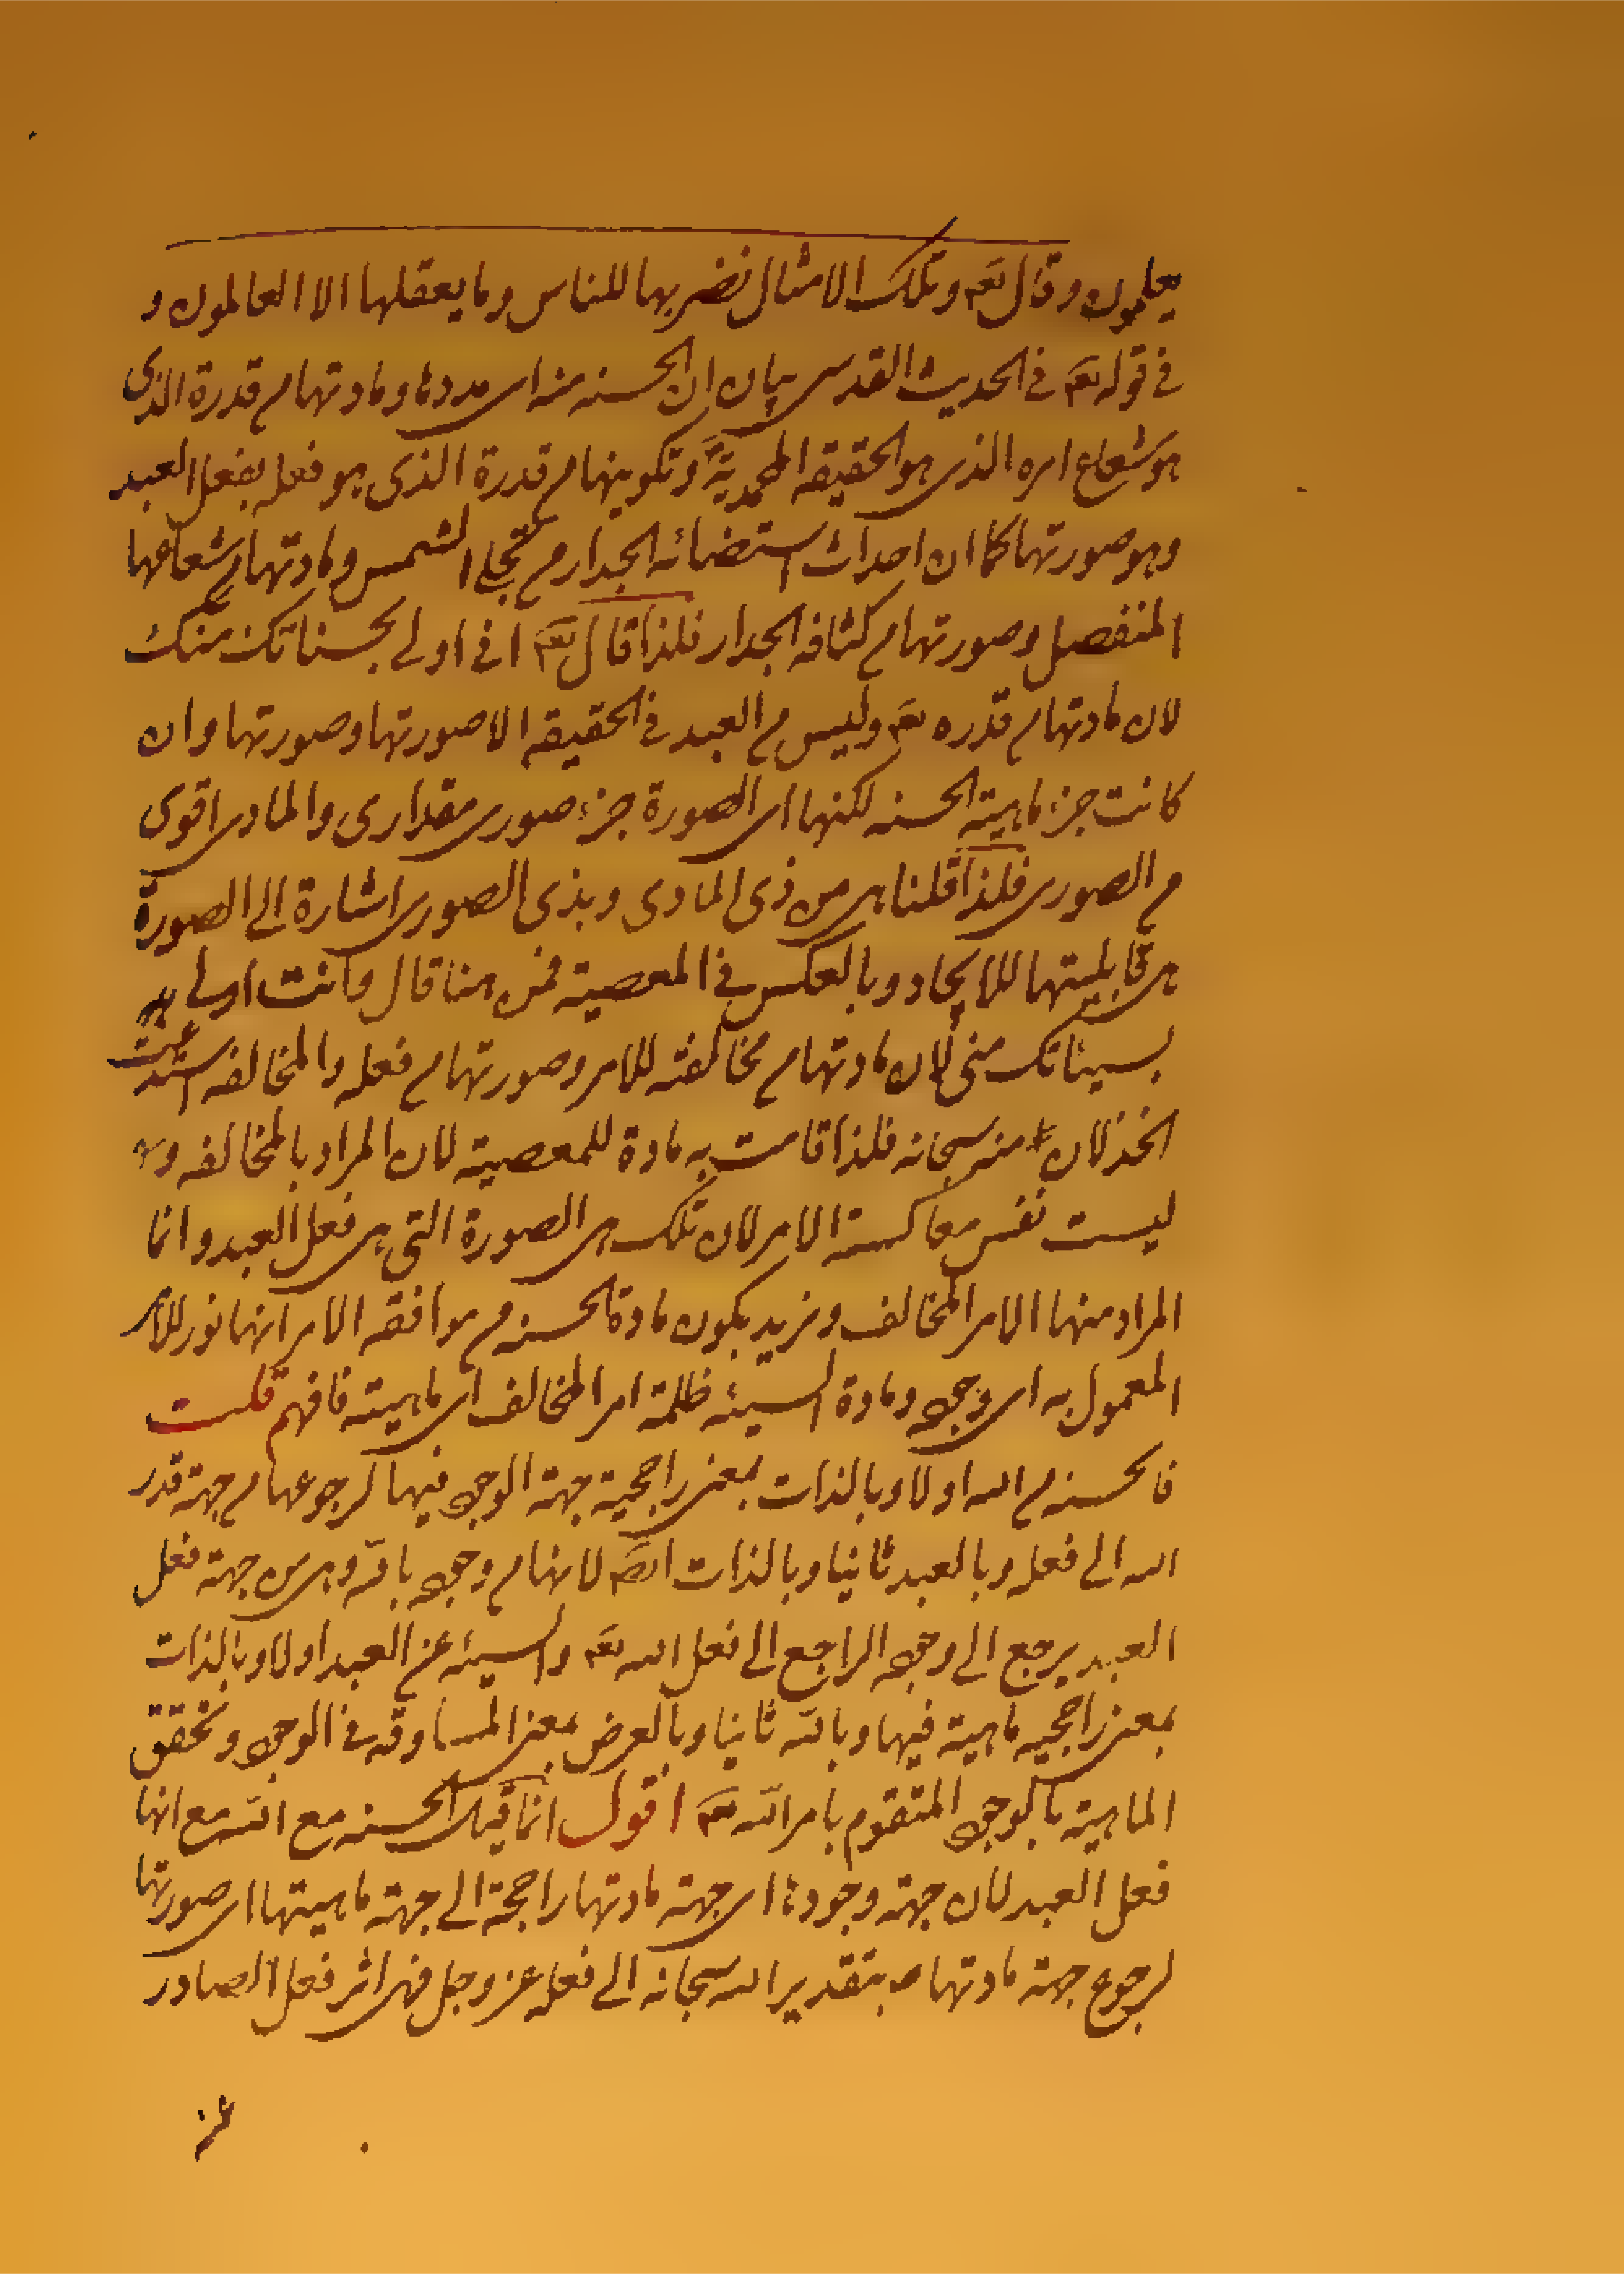 يعلمون وقال تعـ وتلك الامثال نضربها للناس وما يعقلها الا العالمون و
في قوله تعـ في الحديث القدسي بيان ان الحسنه منه اي مددها ومادتها م قدرة الذي
هو شعاع امره الذي هو الحقيقه المحمدية وتكوينها م قدرة الذي هو فعله بفعل العبد
وهو صورتها كما ان احداث استضائه الجدار م تجلي الشمس ومادتها م شعاعها
المنفصل وصورتها م كثافه الجدار فلذا قال تعـ اني اولى بحسناتك منك
لان مادتها م قدره تعـ وليس م العبد في الحقيقه الا صورتها وصورتها وان
كانت جزء ماهية الحسنه لكنها اي الصورة جزء صوري مقداري والمادي اقوى
م الصوري فلذا قلنا هي من ذي المادي وبذي الصوري اشارة الى الصورة
هي قابليتها للايجاد وبالعكس في المعصية فمن هنا قال وانت اولى
بسيئاتك مني لان مادتها م مخالفته للامر وصورتها م فعله والمخالفه استدعت
الخذلان منه سبحانه فلذا قامت به مادة للمعصية لان المراد بالمخالفه
ليست نفس معاكسة الامر لان تلك هي الصورة التي هي فعل العبد وانما
المراد منها الامر المخالف ونريد بكون مادة الحسنه م موافقه الامر انها نور للامر
المعمول به اي وجوده ومادة السيئه ظلمة امر المخالف اي ماهيته فافهم قلت
فالحسنه م الله اولا وبالذات بمعنى راجحية جهة الوجود فيها لرجوعها م جهة قدر
الله الى فعله وبالعبد ثانيا وبالذات ايضا لانها م وجوده بالله وهي من جهة فعل
العبد يرجع الى وجوده الراجع الى فعل الله تعـ والسيئه من العبد اولا وبالذات
بمعنى راجحيه ماهية فيها وبالله ثانيا وبالعرض بمعنى المساوقه في الوجود وتحقق
الماهية بالوجود المتقوم بامر الله تعـ اقول انما قيل الحسنه مع الله مع انها
فعل العبد لان جهة وجودها اي جهة مادتها راجحة الى جهة ماهيتها اي صورتها
لرجوع جهة مادتها بتقدير الله سبحانه الى فعله عز وجل فهي اثر فعل الصادر
عنه